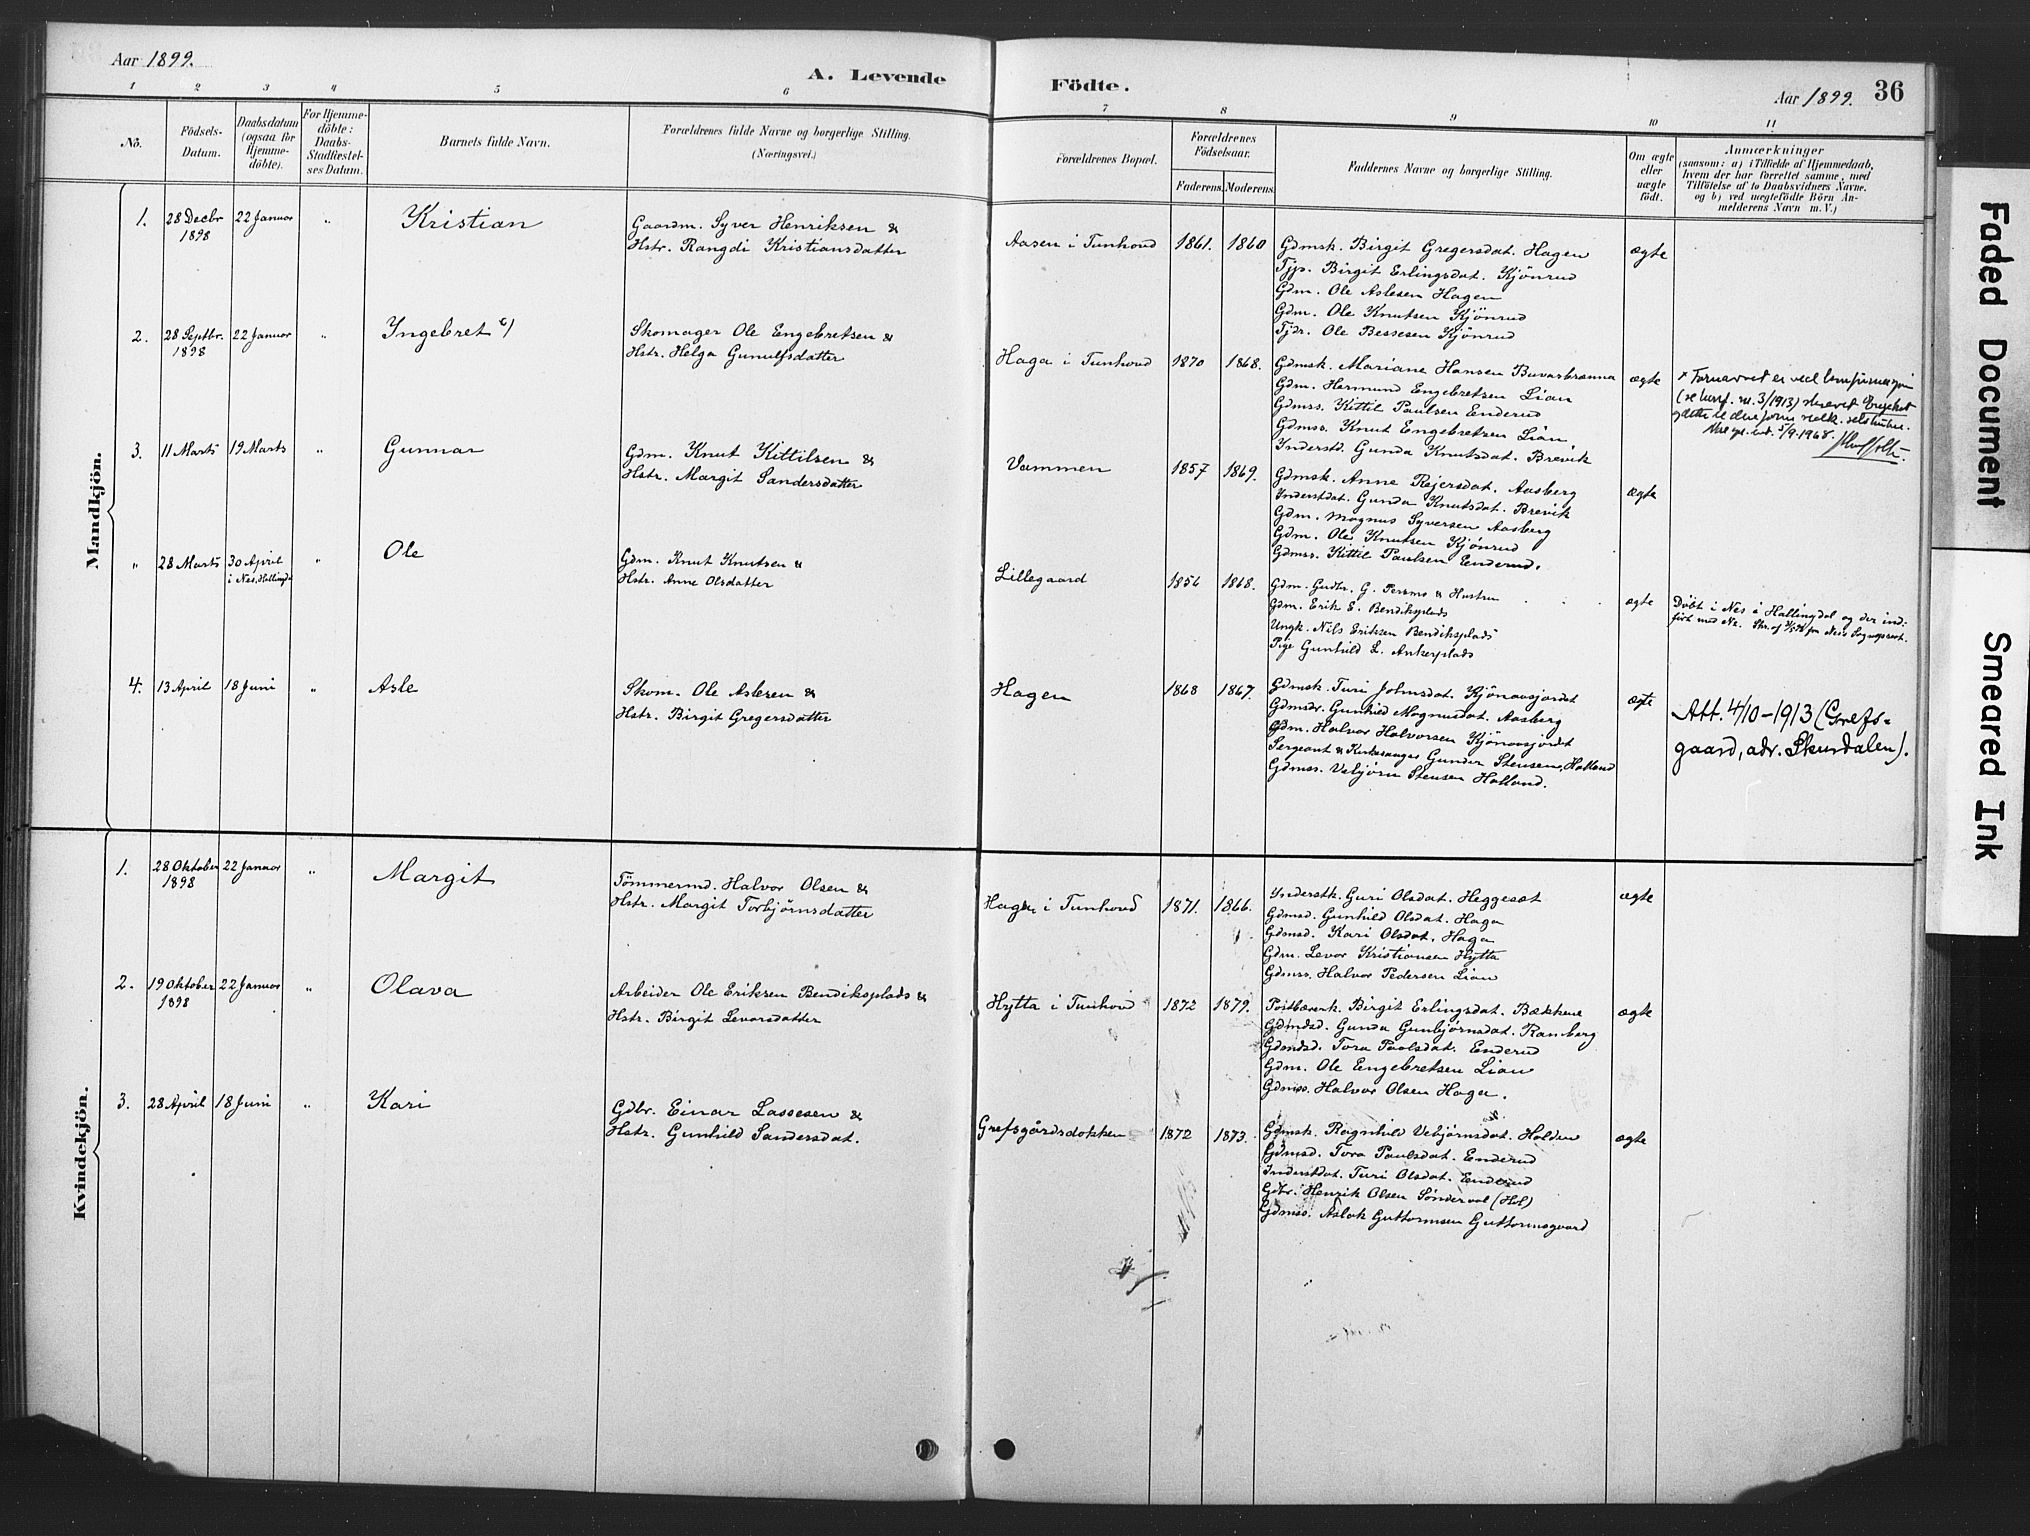 Aar 1899.
A. Levende
Födte.
Aar 1899.
36
1 2 3 4 5 6 7 8 9 10 11
No.
Födsels-
Datum.
Daabsdatum
(ogsaa for
Hjemme-
döbte).
For Hjemme-
döbte:
Daabs-
Stadfæstel-
ses Datum.
Barnets fulde Navn.
Forældrenes fulde Navne og borgerlige Stilling.
(Næringsvei.)
Forældrenes Bopæl.
Forældrenes
Födselsaar.
Faderens. Moderens.
Faddernes Navne og borgerlige Stilling.
Om ægte
eller
uægte
födt.
Anmærkninger
(saasom: a) i Tilfælde af Hjemmedaab,
hvem der har forrettet samme, med
Tilföielse af to Daabsvidners Navne.
og b) ved uægtefödte Börn An-
melderens Navn m. V.)
Mandkjön.
1.
28 Decbr
1898
22 Januar
"
Kristian
Gaardm. Syver Henriksen &
Hstr. Rangdi Kristiansdatter
Aasen i Tunhovd
1861.
1860
Gdmsk. Birgit Gregersdat. Hagen
Tjp. Birgit Erlingsdat. Kjönrud
Gdm. Ole Aslesen Hagen
Gdm. Ole Knutsen Kjönrud
Tjdr. Ole Bessesen Kjönrud
ægte
2.
28 Septbr.
1898
22 Januar
"
Ingebret
Skomager Ole Engebretsen &
Hstr. Helga Gunulfsdatter
Haga i Tunhovd
1870
1868.
Gdmsk. Mariane Hansen Buvasbrænna
Gdm. Hermund Engebretsen Lian
Gdmss. Kittil Paulsen Enderud
Gdmss. Knut Engebretsen Lian.
Inderstd. Gunda Knutsdat. Brevik
ægte
x Fornavnet er ved konfirmasjon
(se konf. nr. 3/1913) skrevet Engebret
5/9-1968.
3.
11 Marts
19 Marts
"
Gunnar
Gdm. Knut Kittilsen &
Hstr. Margit Sandersdatter
Vammen
1857
1869.
Gdmsk. Anne Rejersdat. Aasberg
Inderstdat. Gunda Knutsdat. Brevik
Gdm. Magnus Syversen Aasberg
Gdm. Ole Knutsen Kjönrud
Gdmss. Kittil Paulsen Enderud.
ægte
"
28 Marts
30 April
i Nes, Hallingd
"
Ole
Gdm. Knut Knutsen &
Hstr. Anne Olsdatter
Lillegaard
1856
1868.
Gdm. Gudbr. G. & Hustru
Gdm. Erik E. Bendiksplads
Ungk. Nils Eriksen Bendiksplads
Pige Gunhild L. Ankerplads
ægte
Döbt i Nes i Hallingdal og der ind-
fört med Nr. Skr. af fra Nes Sogneprest.
4.
13 April
18 Juni
"
Asle
Skom. Ole Aslesen &
Hstr. Birgit Gregersdatter
Hagen
1868
1867.
Gdmsk. Turi Johnsdat. Kjönaasjordet
Gdmsdr. Gunhild Magnusdat. Aasberg
Gdm. Halvor Halvorsen Kjönaasjordet
Sergeant & Kirkesanger Gunder Stensen, Halland
Gdmss. Vebjörn Stensen Halland.
ægte
Att. 4/10-1913 (Grefs-
gaard, adr. Skurdalen).
Kvindekjön.
1.
28 Oktober
1898
22 Januar
"
Margit
Tömmermd. Halvor Olsen &
Hstr. Margit Torbjörnsdatter
Haga i Tunhovd
1871.
1866.
Inderstk. Guri Olsdat. Heggesat
Gdmsd. Gunhild Olsdat. Haga
Gdmsd. Kari Olsdat. Haga
Gdm. Levor Kristiansen Hytta
Gdmss. Halvor Pedersen Lian
ægte
2.
19 Oktober
1898
22 Januar
"
Olava
Arbeider Ole Eriksen Bendiksplads &
Hstr. Birgit Levorsdatter
Hytta i Tunhovd
1872
1879.
Postbærerk. Birgit Erlingsdat. Bækkene
Gdmdsd. Gunda Gunbjörnsdat. Ramberg
Gdmdsd. Tora Paalsdat. Enderud
Gdm. Ole Engebretsen Lian
Gdmss. Halvor Olsen Haga.
ægte
3.
28 April
18 Juni
"
Kari
Gdbr. Einar Lassesen &
Hstr. Gunhild Sandersdat.
Grefsgårdsdokken
1872
1873.
Gdmsk. Ragnhild Vebjörnsdat. Halden
Gdmsd. Tora Paulsdat. Enderud
Inderstdat. Turi Olsdat. Enderud
Gdbr. Henrik Olsen Sönderaal (Hol)
Gdmss. Aslak Guttormsen Guttormsgaard
ægte
Faded Document
Smeared Ink